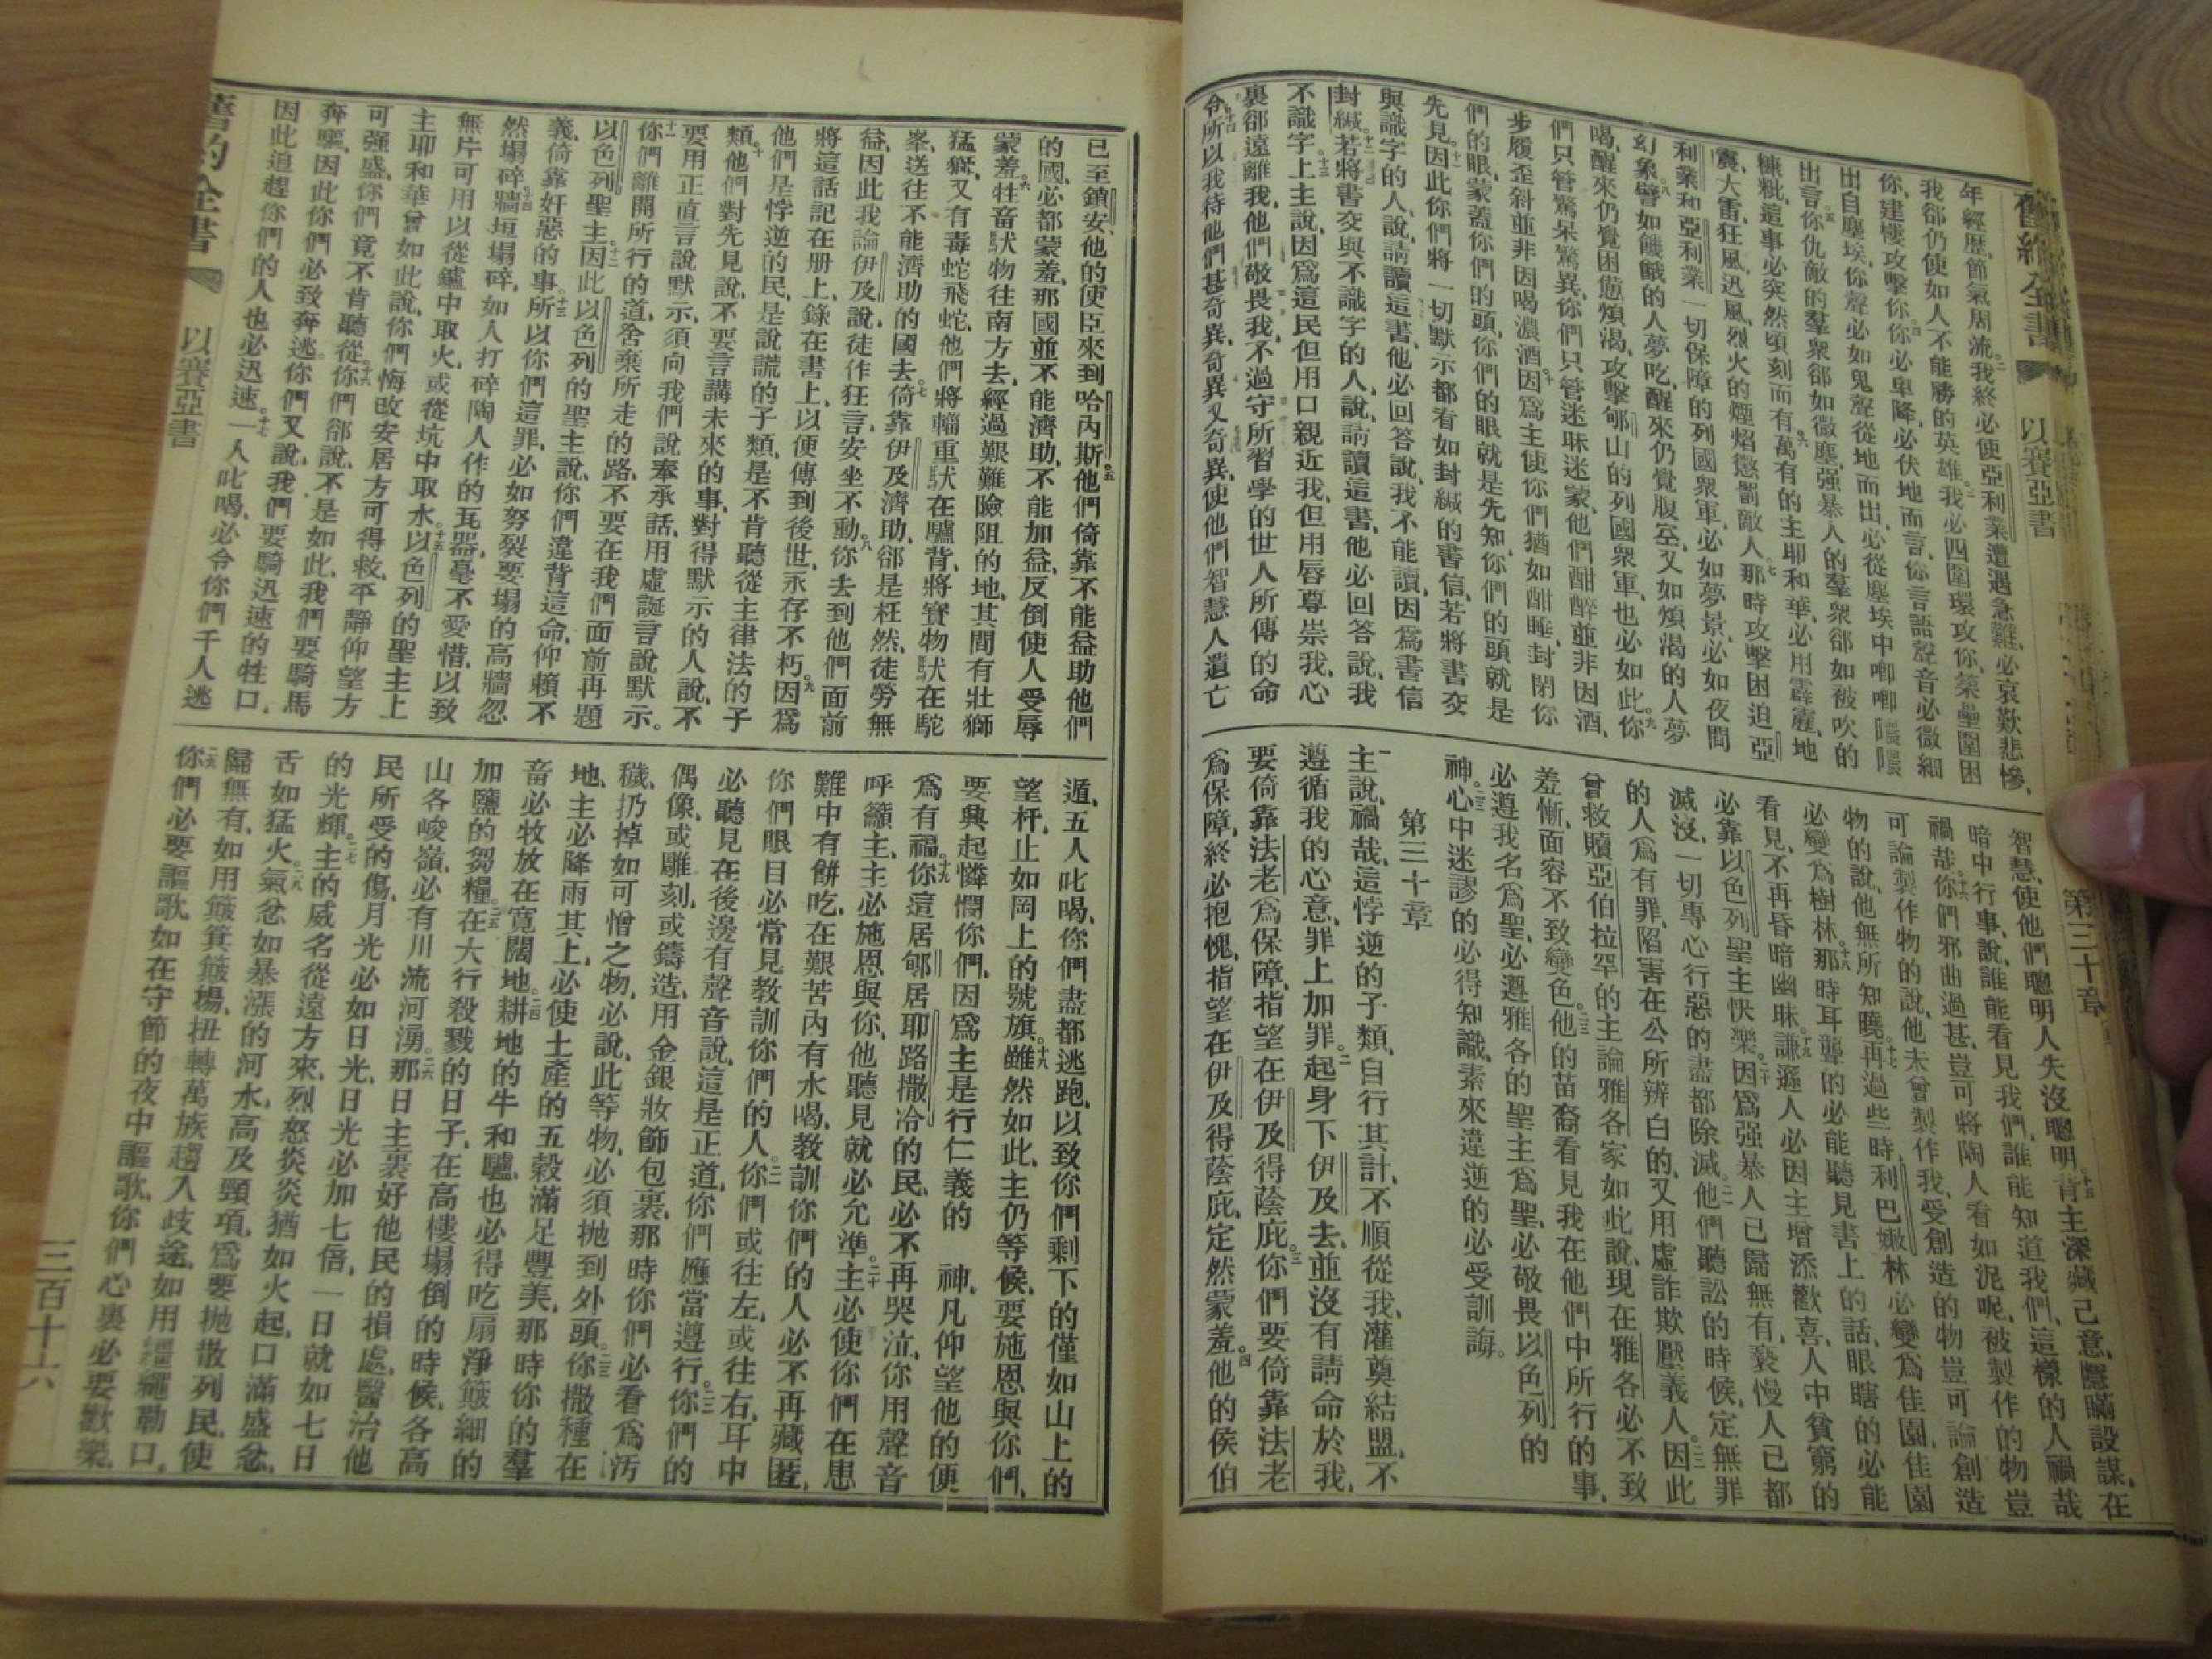 舊約全書
以賽亞書
第三十章
年經歷、節氣周流、二我終必使亞利業遭遇急難、必哀歎悲慘、
我卻仍使如人不能勝的英雄、三我必四圍環攻你、築壘圍困
你、建樓攻擊你、四你必卑降、必伏地而言、你言語聲音必微細
出自塵埃、你聲必如鬼聲從地而出、必從塵埃中唧唧
出言、五你仇敵的羣眾卻如微塵、强暴人的羣眾卻如被吹的
糠粃、這事必突然頃刻而有、六萬有的主耶和華、必用霹靂、地
震、大雷、狂風、迅風、烈火的煙焰懲罰敵人、七那時攻擊困迫亞
利業和亞利業一切保障的列國眾軍、必如夢景、必如夜間
幻象、八譬如饑餓的人夢吃、醒來仍覺腹空、又如煩渴的人夢
喝、醒來仍覺困憊煩渴、攻擊郇山的列國眾軍、也必如此。九你
們只管驚呆驚異、你們只管迷昧迷蒙、他們酣醉並非因酒、
步履歪斜並非因喝濃酒、十因爲主使你們猶如酣睡、封閉你
們的眼、蒙蓋你們的頭、你們的眼就是先知、你們的頭就是
先見。十一因此你們將一切默示都看如封緘的書信、若將書交
與識字的人、說、請讀這書、他必回答說、我不能讀、因爲書信
封緘、十二若將書交與不識字的人、說、請讀這書、他必回答說、我
不識字。十三上主說、因爲這民但用口親近我、但用唇尊崇我、心
裏卻遠離我、他們敬畏我、不過守所習學的世人所傳的命
令、十四所以我待他們甚奇異、奇異又奇異、使他們智慧人遺亡
智慧、使他們聰明人失沒聰明。十五背主深藏己意、隱瞞設謀、在
暗中行事、說、誰能看見我們、誰能知道我們、這樣的人禍哉
禍哉。十六你們邪曲過甚、豈可將陶人看如泥呢、被製作的物豈
可論製作物的說、他未曾製作我、受創造的物豈可論創造
物的說、他無所知曉。十七再過些時、利巴嫩林必變爲佳園、佳園
必變爲樹林。十八那時耳聾的必能聽見書上的話、眼瞎的必能
看見、不再昏暗幽昧。十九謙遜人必因主增添歡喜、人中貧窮的
必靠以色列聖主快樂。二十因爲强暴人已歸無有、褻慢人已都
滅沒、一切專心行惡的盡都除滅。二一他們聽訟的時候、定無罪
的人爲有罪、陷害在公所辨白的、又用虛詐欺壓義人。二二因此
曾救贖亞伯拉罕的主論雅各家如此說、現在雅各必不致
羞慚、面容不致變色。二三他的苗裔看見我在他們中所行的事、
必遵我名爲聖、必遵雅各的聖主爲聖、必敬畏以色列的
神。二四心中迷謬的必得知識、素來違逆的必受訓誨。
第三十章
一主說、禍哉、這悖逆的子類、自行其計、不順從我、灌奠結盟、不
遵循我的心意、罪上加罪。二起身下伊及去、並沒有請命於我、
要倚靠法老爲保障、指望在伊及得蔭庇。三你們要倚靠法老
爲保障、終必抱愧、指望在伊及得蔭庇、定然蒙羞。四他的侯伯
已至鎖安、他的使臣來到哈內斯。五他們倚靠不能益助他們
的國、必都蒙羞、那國並不能濟助、不能加益、反倒使人受辱
蒙羞。六牲畜馱物往南方去、經過艱難險阻的地、其間有壯獅
猛獅、又有毒蛇飛蛇、他們將輜重馱在驢背、將寶物馱在駝
峯、送往不能濟助的國去。七倚靠伊及濟助、卻是枉然、徒勞無
益、因此我論伊及說、徒作狂言、安坐不動。八你去到他們面前
將這話記在册上、錄在書上、以便傳到後世、永存不朽。九因爲
他們是悖逆的民、是說謊的子類、是不肯聽從主律法的子
類。十他們對先見說、不要言講未來的事、對得默示的人說、不
要用正直言說默示、須向我們說奉承話、用虛誕言說默示。
十一你們離開所行的道、舍棄所走的路、不要在我們面前再題
以色列聖主。十二因此以色列的聖主說、你們違背這命、仰賴不
義、倚靠奸惡的事、十三所以你們這罪、必如努裂要塌的高牆忽
然塌碎、十四牆垣塌碎、如人打碎陶人作的瓦器、毫不愛惜、以致
無片可用以從鑪中取火、或從坑中取水。十五以色列的聖主上
主耶和華曾如此說、你們悔改安居方可得救、平靜仰望方
可强盛、你們竟不肯聽從。十六你們卻說、不是如此、我們要騎馬
奔驅、因此你們必致奔逃。你們又說、我們要騎迅速的牲口、
因此追趕你們的人也必迅速。十七一人叱喝、必令你們千人逃
遁、五人叱喝、你們盡都逃跑、以致你們剩下的僅如山上的
望杆、止如岡上的號旗。十八雖然如此、主仍等候、要施恩與你們、
要興起憐憫你們、因爲主是行仁義的　神、凡仰望他的便
爲有福。十九你這居郇居耶路撒冷的民、必不再哭泣、你用聲音
呼籲主、主必施恩與你、他聽見就必允準。二十主必使你們在患
難中有餅吃、在艱苦內有水喝、教訓你們的人必不再藏匿、
你們眼目必常見教訓你們的人。二一你們或往左、或往右、耳中
必聽見在後邊有聲音說、這是正道、你們應當遵行。二二你們的
偶像、或雕刻、或鑄造、用金銀妝飾包裹、那時你們必看爲汚
穢、扔掉如可憎之物、必說、此等物、必須抛到外頭。二三你撒種在
地、主必降雨其上、必使土產的五穀滿足豐美、那時你的羣
畜必牧放在寬闊地。二四耕地的牛和驢、也必得吃扇淨簸細的
加鹽的芻糧。二五在大行殺戮的日子、在高樓塌倒的時候、各高
山各峻嶺、必有川流河湧。二六那日主裹好他民的損處、醫治他
民所受的傷、月光必如日光、日光必加七倍、一日就如七日
的光輝。二七主的威名從遠方來、烈怒炎炎猶如火起、口滿盛忿、
舌如猛火。二八氣忿如暴漲的河水、高及頸項、爲要抛散列民、使
歸無有、如用簸箕簸揚、扭轉萬族趨入歧途、如用繮繩勒口。
二九你們必要謳歌、如在守節的夜中謳歌、你們心裏必要歡樂、
舊約全書
以賽亞書
三百十六